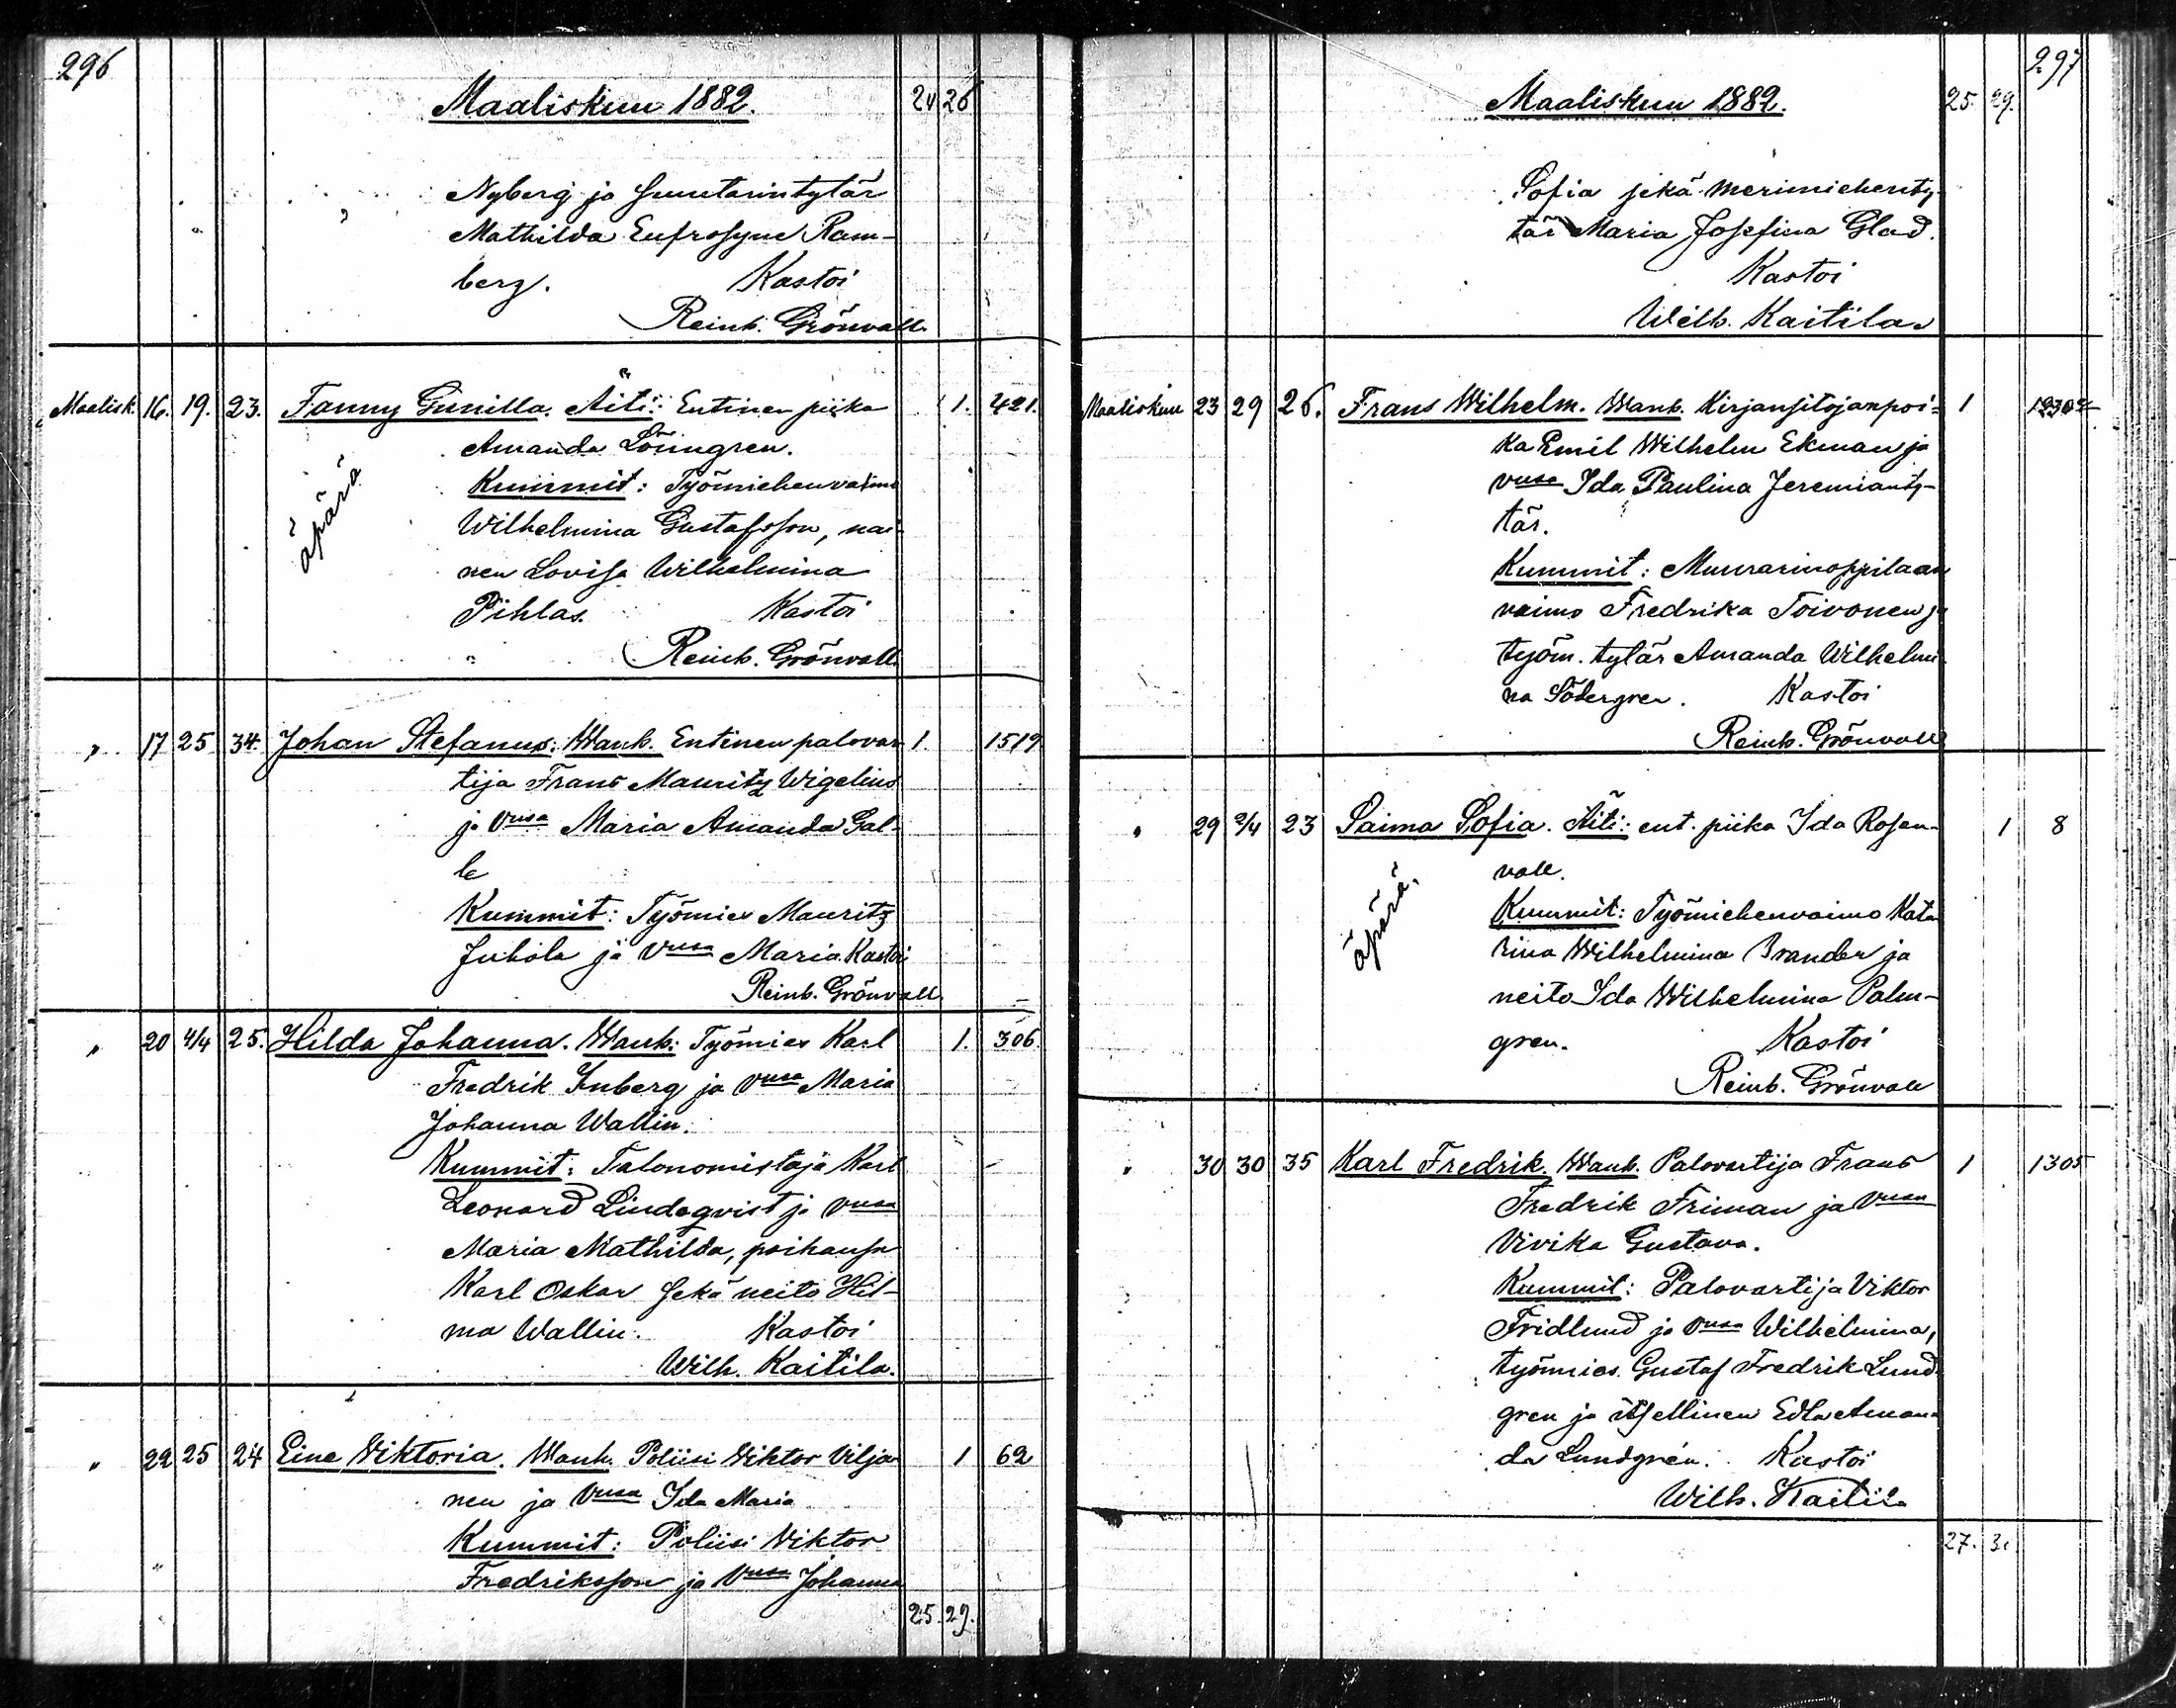 296
Maaliskuu 1882. 24 26
Nyberg ja suutarintytär
Mathilda Eufrosyne Ram-
berg. Kastoi
Reinh. Grönvall.
Maalisk. 16. 19. 23. Fanny Gunilla. Äiti: Entinen piika 1. 421.
Amanda Lönngren.
äpärä
Kummit: Työmiehenvaimo
Wilhelmina Gustafsson, nai-
nen Lovisa Wilhelmina
Pihlas. Kastoi
Reinh. Grönvall
" 17 25 34. Johan Stefanus. Wanh. Entinen palovar- 1. 1519
tija Frans Mauritz Wigelius
ja vmsa Maria Amanda Gal-
le
Kummit: Työmies Mauritz
Juhola ja vmsa Maria. Kastoi
Reinh. Grönvall.
" 20 4/4 25. Hilda Johanna. Wanh: Työmies Karl 1. 306.
Fredrik Inberg ja vmsa Maria
Johanna Wallin.
Kummit: Talonomistaja Karl
Leonard Lindeqvist ja vmsa
Maria Mathilda, poikansa
Karl Oskar sekä neito Hil-
ma Wallin. Kastoi
Wilh. Kaitila.
" 22 25 24 Eine Viktoria. Wanh. Poliisi Viktor Vilja- 1 62
nen ja vmsa Ida Maria
Kummit: Poliisi Viktor
Fredriksson ja vmsa Johanna
25. 29.
297
Maaliskuu 1882. 25. 29.
Sofia sekä merimiehenty-
tär Maria Josefina Glad.
Kastoi
Wilh. Kaitila
Maaliskuu 23 29 26. Frans Wilhelm. Wanh. Kirjansitojanpoi- 1
ka Emil Wilhelm Ekman ja
vmsa Ida Paulina Jeremianty-
tär.
Kummit: Muurarinoppilaan
vaimo Fredrika Toivonen ja
työm. tytär Amanda Wilhelmi-
na Södergren. Kastoi
Reinh. Grönvall
" 29 2/4 23 Saima Sofia. Äiti: ent. piika Ida Rosen- 1 8
vall.
äpärä.
Kummit: Työmiehenvaimo Kata
rina Wilhelmina Brander ja
neito Ida Wilhelmina Palm-
gren. Kastoi
Reinh. Grönvall
" 30 30 35 Karl Fredrik. Wanh. Palovartija Frans 1 1305
Fredrik Friman ja vmsa
Vivika Gustava.
Kummit: Palovartija Viktor
Fridlund ja vmsa Wilhelmina,
työmies Gustaf Fredrik Lund-
gren ja itsellinen Edla Aman-
da Lundgrén. Kastoi
Wilh. Kaitila
27. 30